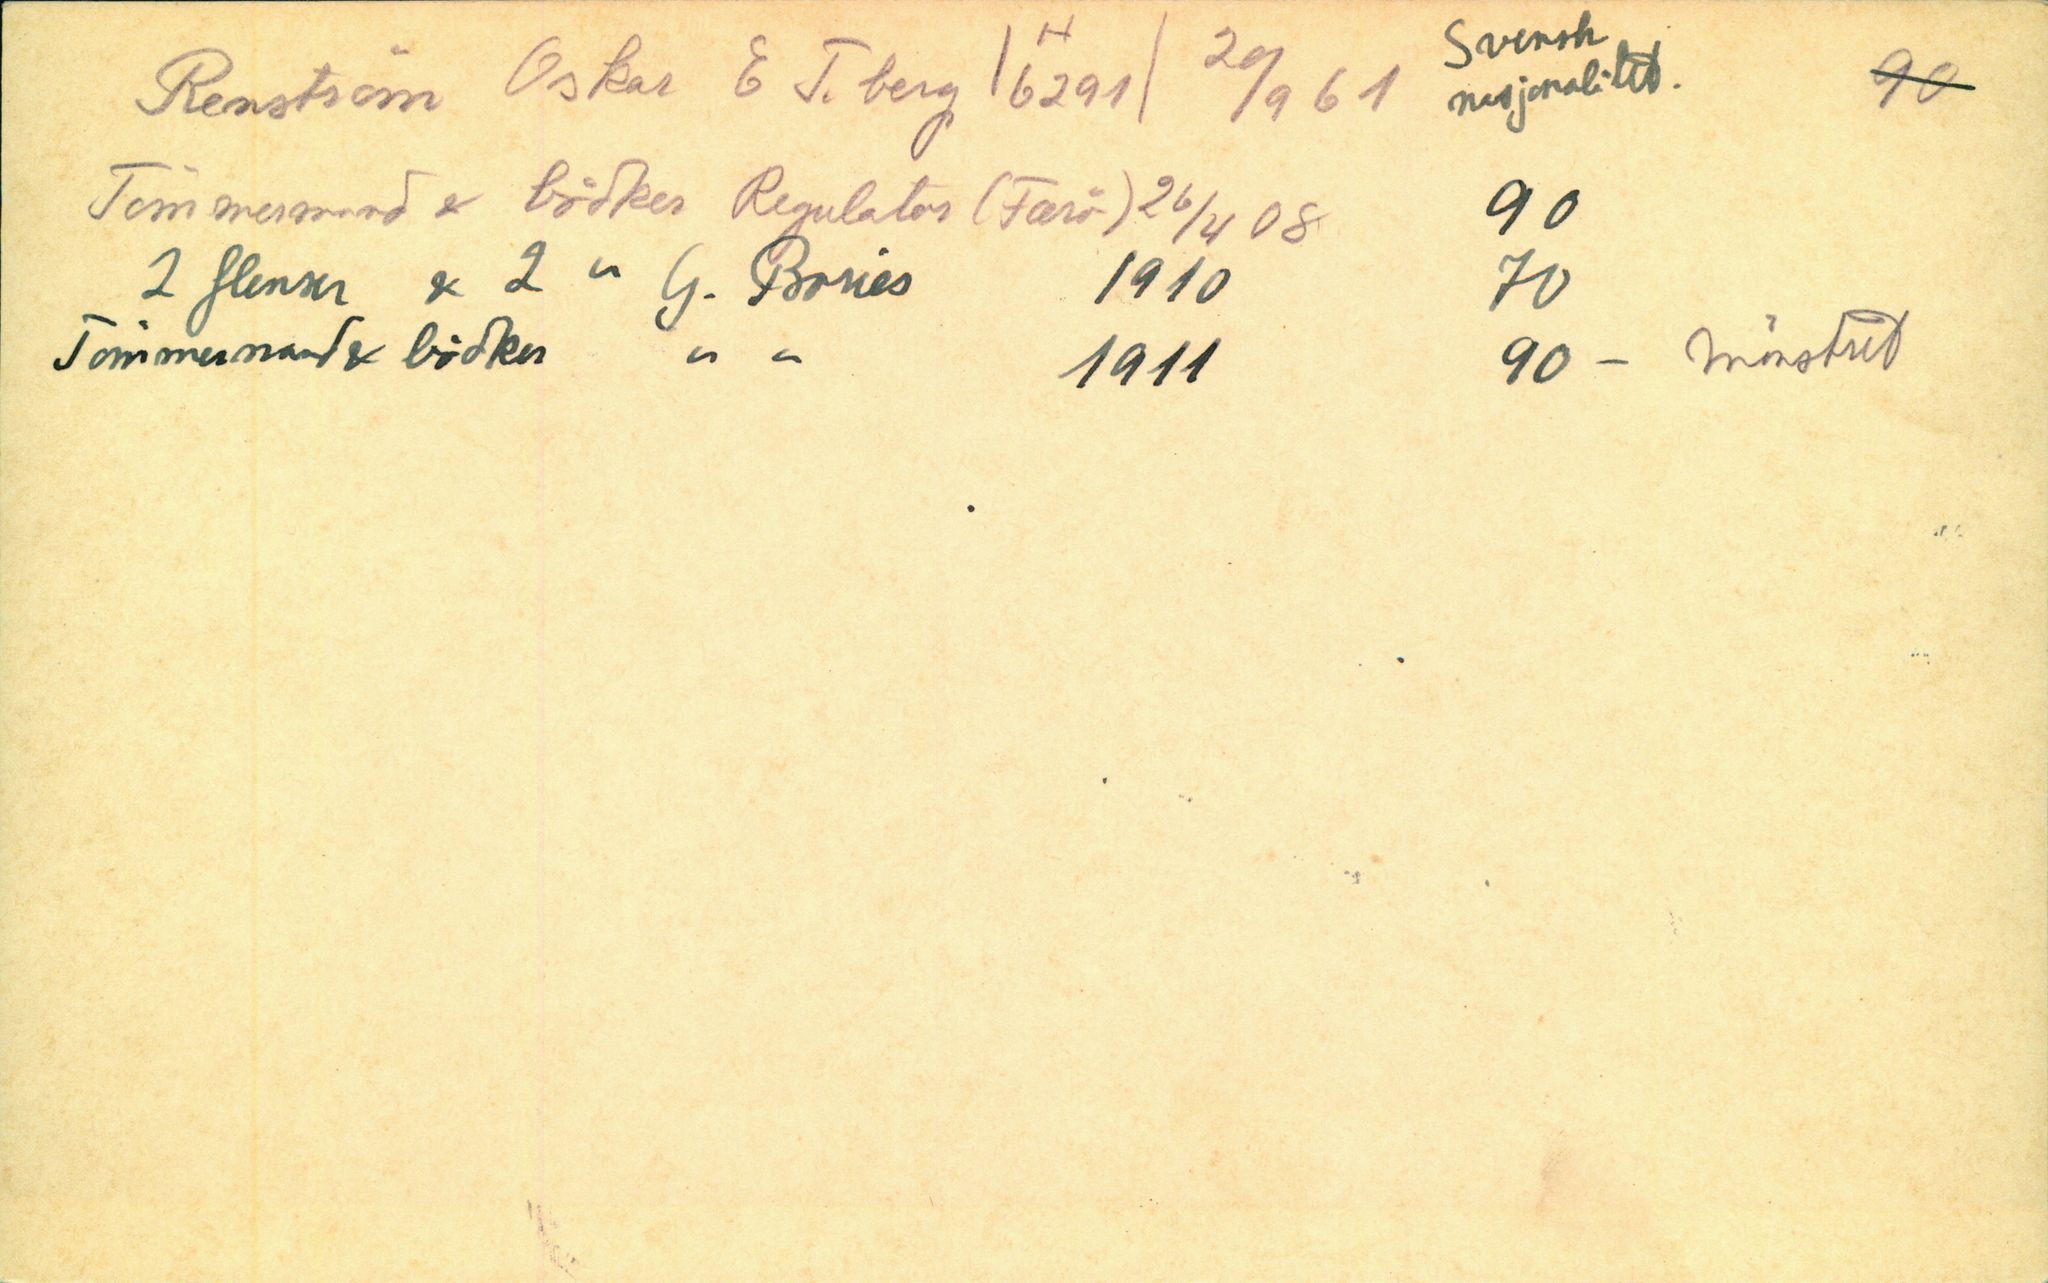 Renström Oskar E T.berg | H 6291 | 29/9 61 Svensk nasjonalitet. 90
Tömmermand & bödker Regulator (Færö) 26/4 08 90
2 flenser & 2 " G. Bories 1910 70
Tömmermand & bödker " " 1911 90 - Mönstret